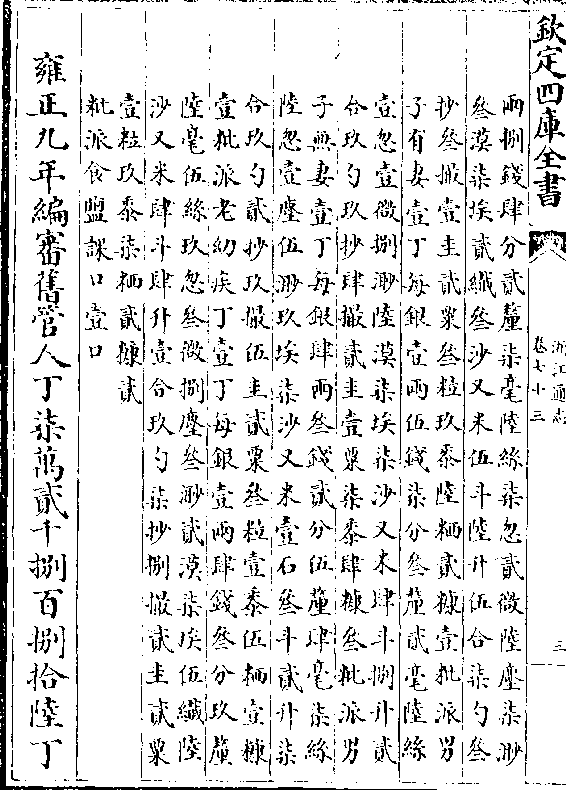 欽定四庫全書
浙江通志
卷七十三
三
兩捌錢肆分貳釐柒毫陸絲柒忽貳微陸塵柒渺
叁漠柒埃貳纖叁沙又米伍斗陸升伍合柒勺叁
抄叁撮壹圭貳粟叁粒玖黍陸粞貳糠壹粃派男
子有妻壹丁每銀壹兩伍錢柒分叁釐貳毫陸絲
壹忽壹微捌渺陸漠柒埃柒沙又米肆斗捌升貳
合玖勺玖抄肆撮貳圭壹粟柒黍肆糠叁粃派男
子無妻壹丁每銀肆兩叁錢貳分伍釐肆毫柒絲
陸忽壹塵伍渺玖埃柒沙又米壹石叁斗貳升柒
合玖勺貳抄玖撮伍圭貳粟叁粒壹黍伍粞壹糠
壹粃派老幼疾丁壹丁每銀壹兩肆錢叁分玖釐
陸毫伍絲玖忽叁微捌塵叁渺貳漠柒埃伍纖陸
沙又米肆斗肆升壹合玖勺柒抄捌撮貳圭貳粟
壹粒玖黍柒粞貳糠貳
粃派食鹽課口壹口
雍正九年編審舊管人丁柒萬貳千捌百捌拾陸丁